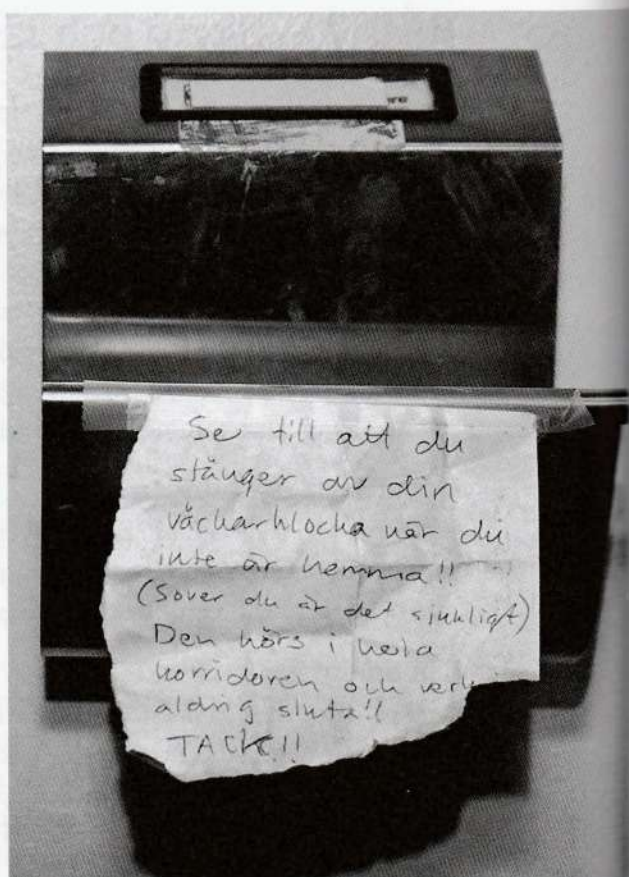 Se till att du
stänger av din
väckarklocka när du
inte är hemma!!
(Sover du är det sjukligt)
Den hörs i hela
korridoren och
aldrig sluta!!
TACK!!